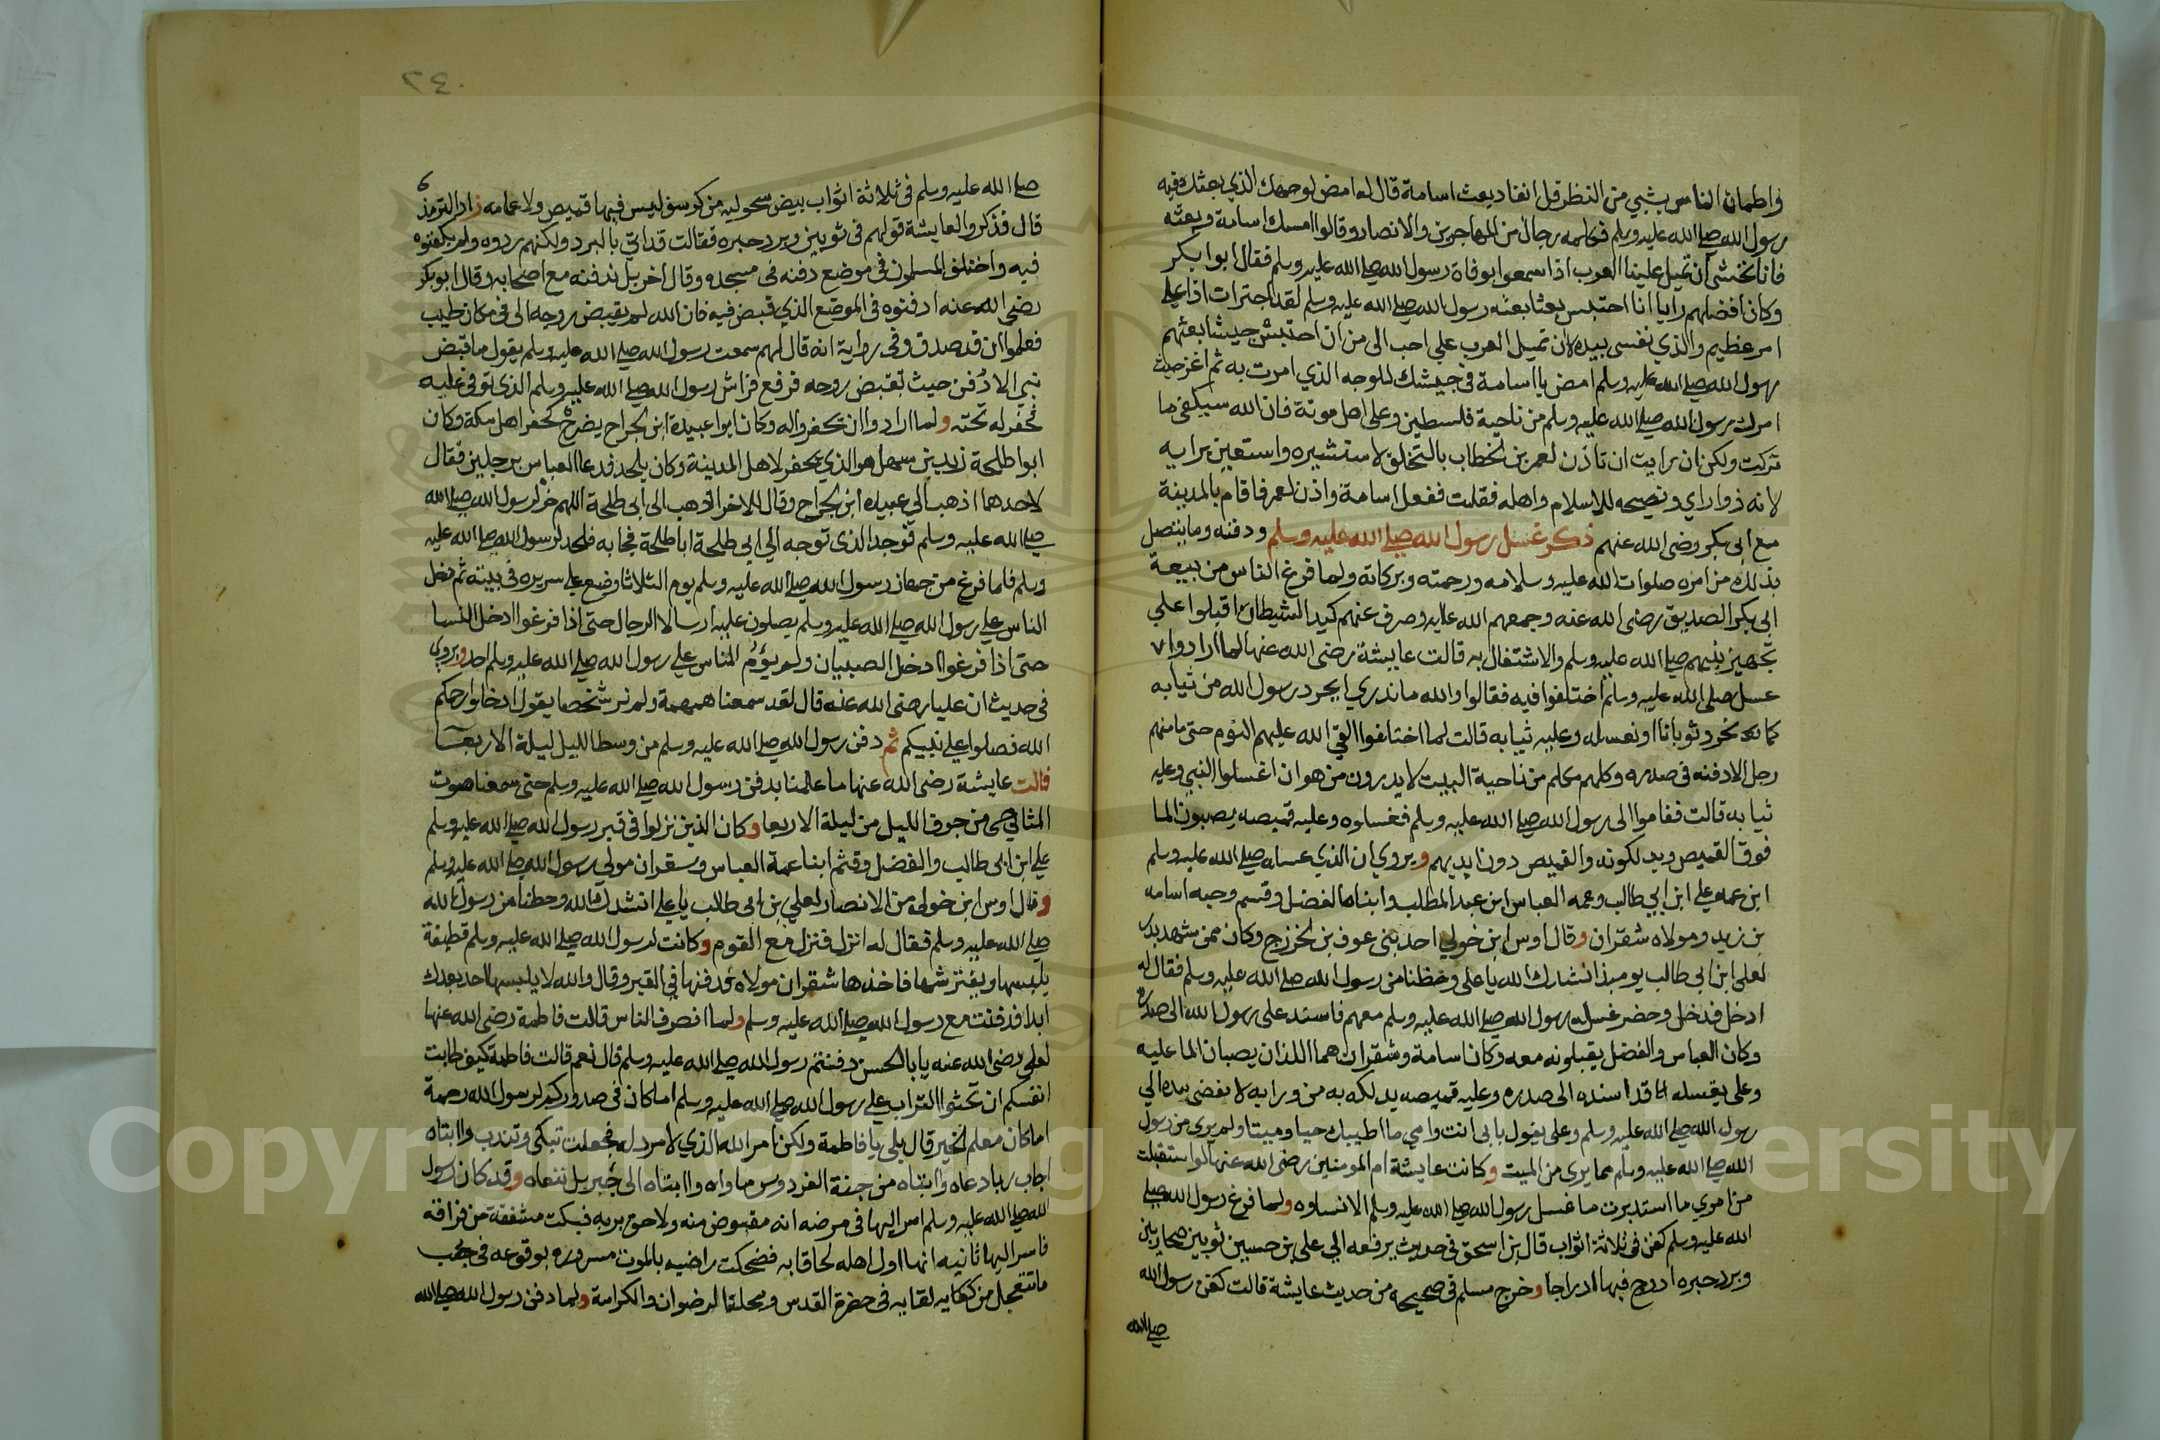 واطمان الناس بشي من النظر قبل انفاد بعث اسامة قال له امض لوجهك الذي بعثك فيه
رسول الله صلى الله عليه وسلم فكلمه رجال من المهاجرين والانصار وقالوا امسك اسامة وبعثه
فانا نخشى ان تميل علينا العرب اذا سمعوا بوفاة رسول الله صلى الله عليه وسلم فقال ابوا بكر
وكان افضلهم رايا انا احتبس بعثا بعثه رسول الله صلى الله عليه وسلم لقد اجترات اذا على
امر عظيم والذي نفسي بيده لان تميل العرب علي احب الى من ان احتبس جيشا بعثهم
رسول الله صلى الله عليه وسلم امض يا اسامة في جيشك للوجه الذي امرت به ثم اغز حيث
امرك رسول الله صلى الله عليه وسلم من ناحية فلسطين وعلى اهل موتة فان الله سيكفي ما
تركت ولكن ان رايت ان تاذن لعمر بن الخطاب بالتخلف لاستشيره واستعين برايه
لانه ذوا راي ونصيحه للاسلام واهله فقلت ففعل اسامة واذن لعمر فاقام بالمدينة
مع ابى بكر رضى الله عنهم ذكر غسل رسول الله صلى الله عليه وسلم ودفنه وما يتصل
بذلك من امره صلوات الله عليه وسلامه ورحمته وبركاته ولما فرغ الناس من بيعة
ابى بكر الصديق رضى الله عنه وجمعهم الله عليه وصرف عنهم كيد الشيطان اقبلوا على
تجهيز نبيهم صلى الله عليه وسلم والاشتغال به قالت عايشة رضى الله عنها لما ارادوا
غسل صلى الله عليه وسلم اختلفوا فيه فقالوا والله ما ندري ايجرد رسول الله من ثيابه
كما نجرد موتانا او نغسله وعليه ثيابه قالت لما اختلفوا القى الله عليهم النوم حتى ما منهم
رجل الا دقنه في صدره وكلمهم مكلم من ناحية البيت لا يدرون من هو ان اغسلوا النبي وعليه
ثيابه قالت فقاموا الى رسول الله صلى الله عليه وسلم فغسلوه وعليه قميصه يصبون الما
فوق القميص ويدلكونه والقميص دون ايديهم ويروي ان الذي غسله صلى الله عليه وسلم
ابن عمه على ابن ابي طالب وعمه العباس ابن عبد المطلب وابناه الفضل وقثم وحبه اسامه
بن زيد ومولاه شقران وقال اوس ابن خولي احد بنى عوف بن الخزرج وكان ممن شهد بدر
لعلى ابن ابى طالب يوميذ انشدك الله يا على وحظنا من رسول الله صلى الله عليه وسلم فقال له
ادخل فدخل وحضر غسل رسول الله صلى الله عليه وسلم معهم فاسنده على رسول الله الى صدره
وكان العباس والفضل يقبلونه معه وكان اسامة وشقران هما اللذان يصبان الما عليه
وعلى يغسله قد اسنده الى صدره وعليه قميصه يدلكه به من ورايه لا يفضى بيده الي
رسول الله صلى الله عليه وسلم وعلى يقول بابى انت وامي ما اطيبك حيا وميتا ولم يرى من رسول
الله صلى الله عليه وسلم مما يرى من الميت وكانت عايشة ام المومنين رضى الله عنها تقول لو استقبلت
من امري ما استدبرت ما غسل رسول الله صلى الله عليه وسلم الا نساوه ولما فرغ رسول الله صلى
الله عليه وسلم كفن في ثلاثة اثواب قال بن اسحق في حديث يرفعه الي علي بن حسين ثوبين صحاريين
وبرد حبره ادرج فيها ادراجا وخرج مسلم في صحيحه من حديث عايشة قالت كفن رسول الله
صلى الله
٢٤٠
صلى الله عليه وسلم في ثلاثة اثواب بيض سحوليه من كرسف ليس فيها قميص ولا عمامه زاد الترمذي
قال فذكروا لعايشة قولهم في ثوبين وبرد حبره فقالت قد اتي بالبرد ولكنهم ردوه ولم يكفنوه
فيه واختلف المسلمون في موضع دفنه في مسجده وقال اخر بل ندفنه مع اصحابه وقال ابو بكر
رضى الله عنه ادفنوه في الموضع الذي قبض فيه فان الله لم يقبض روحه الى في مكان طيب
فعلموا ان قد صدق وفي رواية انه قال لهم سمعت رسول الله صلى الله عليه وسلم يقول ما قبض
نبى الا دفن حيث تقبض روحه فرفع فراش رسول الله صلى الله عليه وسلم الذى توفي عليه
فحفر له تحته ولما ارادوا ان يحفروا له وكان ابوا عبيدة ابن الجراح يضرح كحفر اهل مكة وكان
ابوا طلحة زيد بن سهل هو الذي يحفر لاهل المدينة وكان يلحد فدعا العباس برجلين فقال
لاحدهما اذهب الى عبيده ابن الجراح وقال للاخر اذهب الى ابى طلحة اللهم خر لرسول الله صلى الله
صلى الله عليه وسلم فوجد الذى توجه الي ابى طلحة ابا طلحة فجا به فلحد لرسول الله صلى الله عليه
وسلم فلما فرغ من جهاز رسول الله صلى الله عليه وسلم يوم الثلاثا وضع على سريره في بيته ثم دخل
الناس على رسول الله صلى الله عليه وسلم يصلون عليه ارسالا الرجال حتى اذا فرغوا ادخل النسا
حتى اذا فرغوا ادخل الصبيان ولم يؤم الناس على رسول الله صلى الله عليه وسلم احد ويروى
فى حديث ان عليا رضى الله عنه قال لقد سمعنا همهمة ولم نر شخصا يقول ادخلوا رحمكم
الله فصلوا على نبيكم ثم دفن رسول الله صلى الله عليه وسلم من وسط الليل ليلة الاربعا
قالت عايشة رضى الله عنها ما علمنا بدفن رسول الله صلى الله عليه وسلم حتى سمعنا صوت
المساحى من جوف الليل من ليلة الاربعا وكان الذين نزلوا في قبر رسول الله صلى الله عليه وسلم
على ابن ابى طالب والفضل وقثم ابنا عمه العباس وشقران مولى رسول الله صلى الله عليه وسلم
وقال اوس ابن خولى من الانصار لعلي بن ابى طالب يا على انشدك الله وحظنا من رسول الله
صلى الله عليه وسلم فقال له انزل فنزل مع القوم وكانت لرسول الله صلى الله عليه وسلم قطيفة
يلبسها ويفترشها فاخذها شقران مولاه ودفنها في القبر وقال والله لا يلبسها احد بعدك
ابدا فدفنت مع رسول الله صلى الله عليه وسلم ولما انصرف الناس قالت فاطمة رضى الله عنها
لعلى رضى الله عنه يا بالحسن دفنتم رسول الله صلى الله عليه وسلم قال نعم قالت فاطمة كيف طابت
انفسكم ان تحثوا التراب على رسول الله صلى الله عليه وسلم اما كان فى صدوركم لرسول الله رحمة
اما كان معلم الخير قال بلى يا فاطمة ولكن امر الله الذي لا مرد له فجعلت تبكى وتندب واابتاه
اجاب ربا دعاه واابتاه من جنة الفردوس ماواه واابتاه الى جبريل ننعاه وقد كان رسول
الله صلى الله عليه وسلم اسر اليها فى مرضه انه مقبوض منه ولاحق بربه فبكت مشفقة من فراقه
فاسر اليها ثانيه انها اول اهله لحاقا به فضحكت راضيه بالموت مسروره بوقوعه فى جنب
ما تتعجل من لقايه فى حضرة القدس ومحلة الرضوان والكرامة ولما دفن رسول الله صلى الله